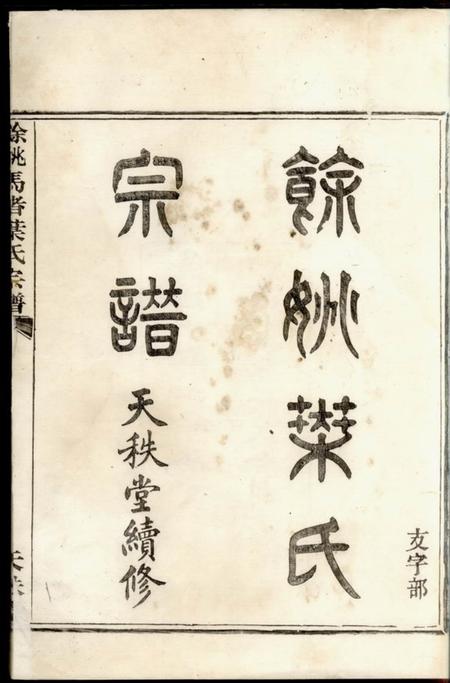 友字部
餘姚葉氏
宗譜
天秩堂續修
餘姚馬者葉氏宗譜